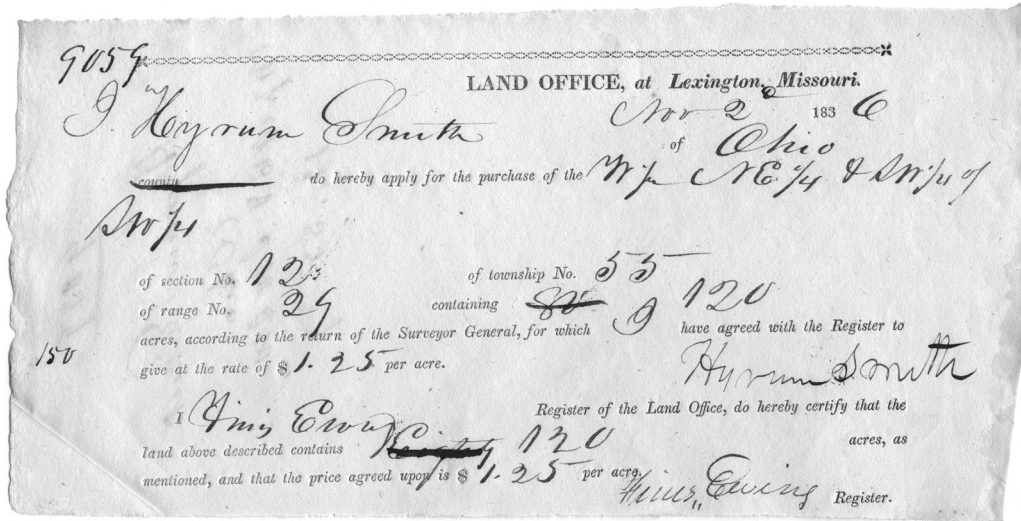 9059
LAND OFFICE, at Lexington, Missouri.
Nov 2d 1836
I Hyrum Smith of Ohio
county do hereby apply for the purchase of the W ½ NE ¼ & SW ¼ of
SW ¼
of section No. 12 of township No. 55
of range No. 29 containing 80 120
acres, according to the return of the Surveyor General, for which I have agreed with the Register to
150
give at the rate of $ 1.25 per acre.
Hyrum Smith
I Finis Ewing Register of the Land Office, do hereby certify that the
land above described contains Eighty 120 acres, as
mentioned, and that the price agreed upon is $ 1.25 per acre.
Finis Ewing Register.